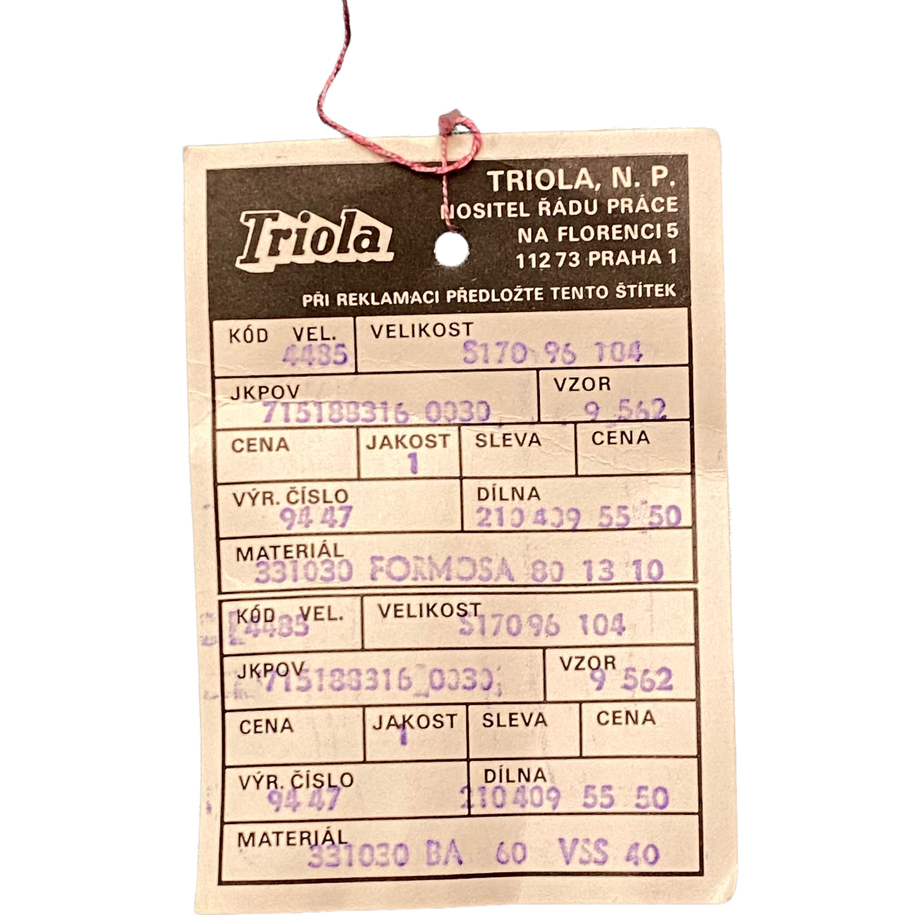 Triola
TRIOLA, N. P.
NOSITEL ŘÁDU PRÁCE
NA FLORENCI 5
112 73 PRAHA 1
PŘI REKLAMACI PŘEDLOŽTE TENTO ŠTÍTEK
KÓD VEL. VELIKOST
4485 S170 96 104
JKPOV VZOR
715188316 0030 9 562
CENA JAKOST SLEVA CENA
1
VÝR. ČÍSLO DÍLNA
94 47 210 409 55 50
MATERIÁL
331030 FORMOSA 80 13 10
KÓD VEL. VELIKOST
4485 S170 96 104
JKPOV VZOR
715188316 0030 9 562
CENA JAKOST SLEVA CENA
1
VÝR. ČÍSLO DÍLNA
94 47 210409 55 50
MATERIÁL
331030 BA 60 VSS 40